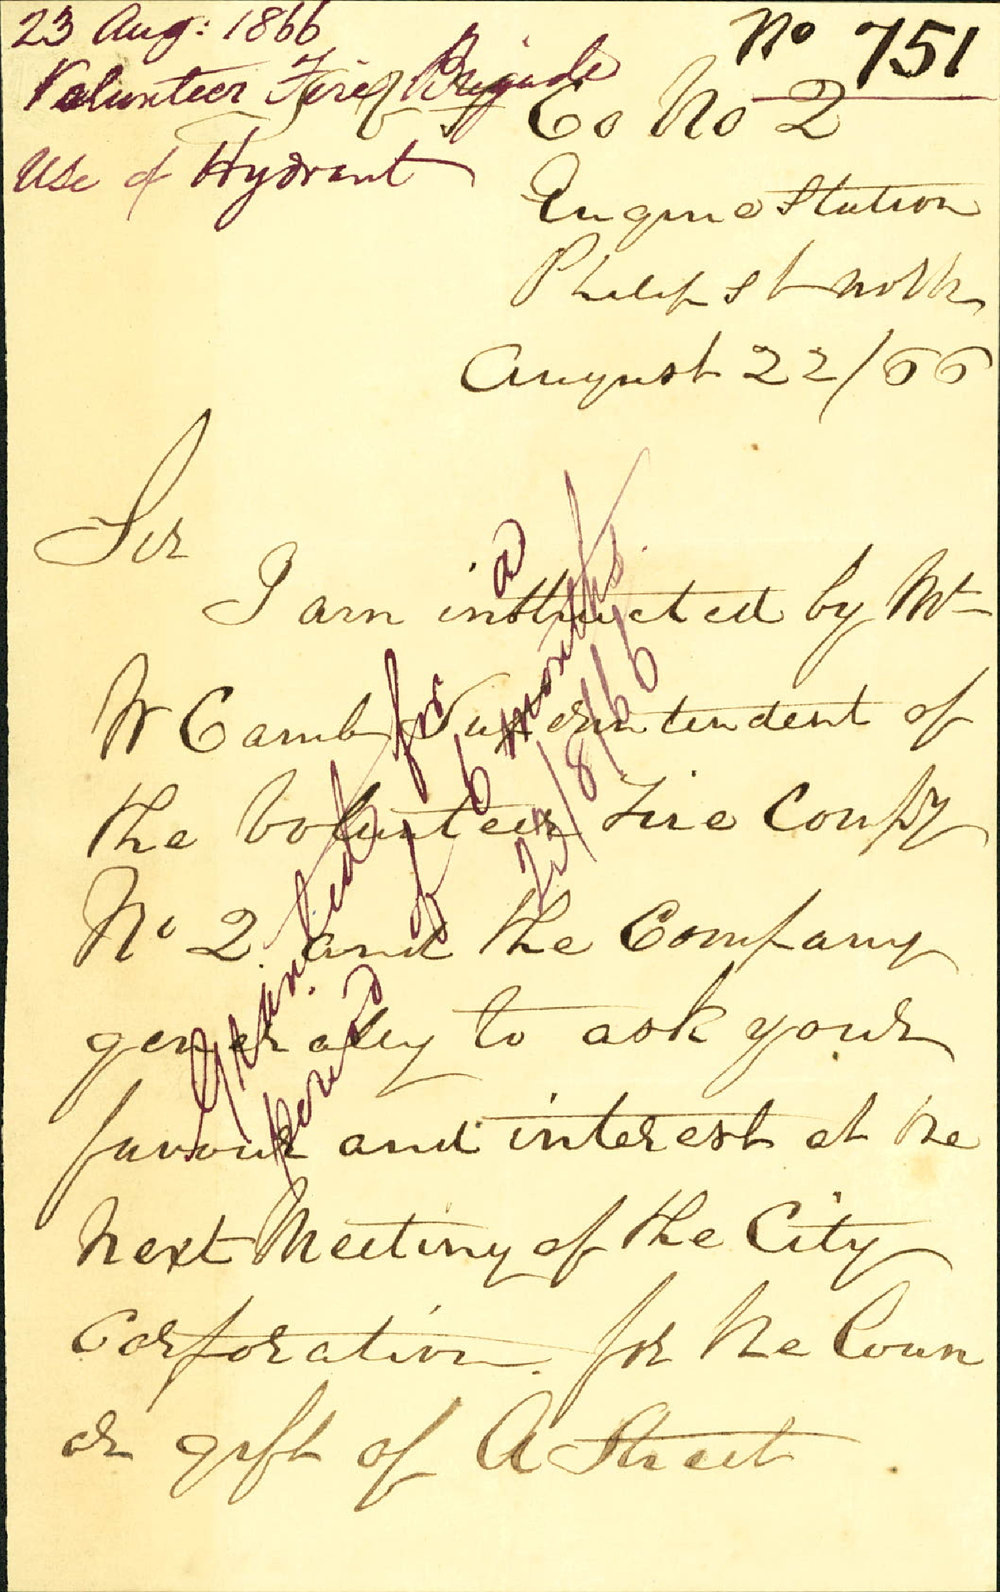 23 Aug: 1866
Volunteer Fire Brigade
Use of Hydrant
No 751
Co No 2
Engine Station
Philip St North
August 22/66
Sir
I am instructed by Mr
W Camb Superintendent of
the Volunteer Fire Compy
No 2 and the Company
generaley to ask your
favour and interest at the
Next Meeting of the City
Corporation for the Loan
or gift of A Street
Granted for a
period of 6 months
27/8/66